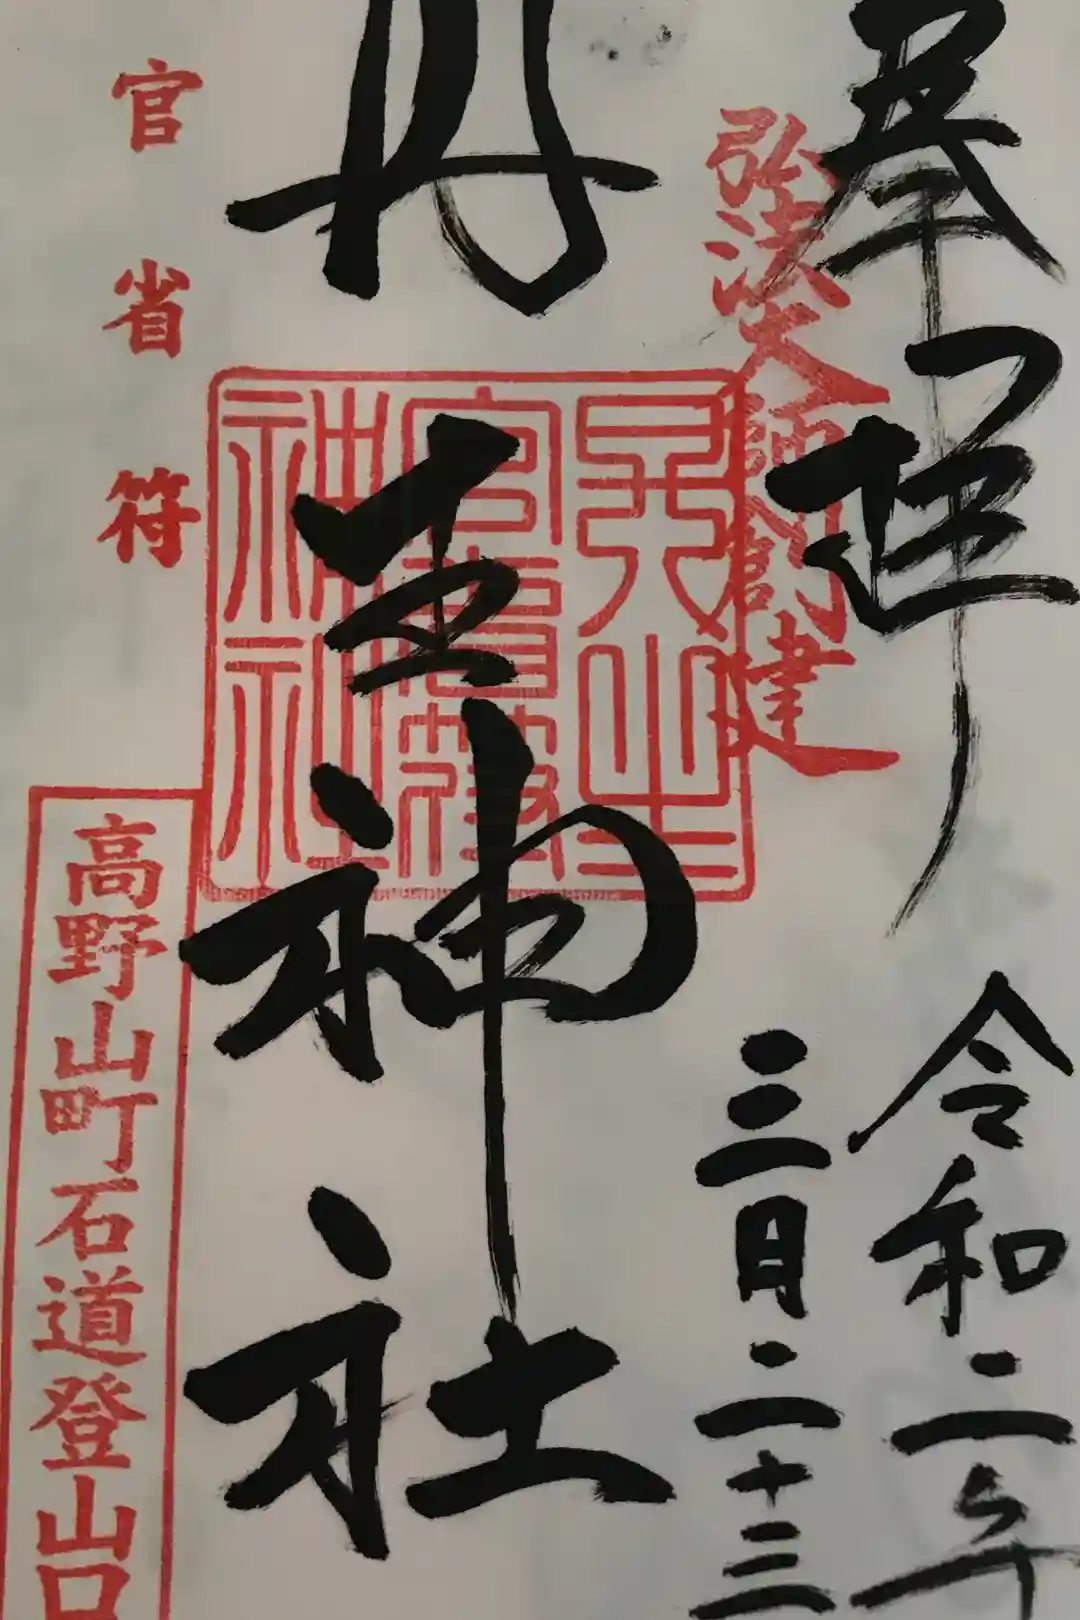 奉拝
令和二年
三月二十三
弘法大師創建
丹生神社
高野山
官省符
神社
官省符
高野山町石道登山口